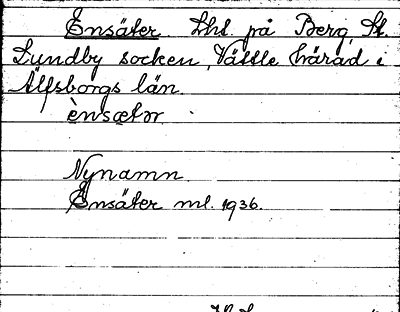 Ensäter. Lht. på Berg, St.
Lundby socken, Vättle härad i
Älfsborgs län.
ènsætər
Nynamn
Ensäter ml. 1936.